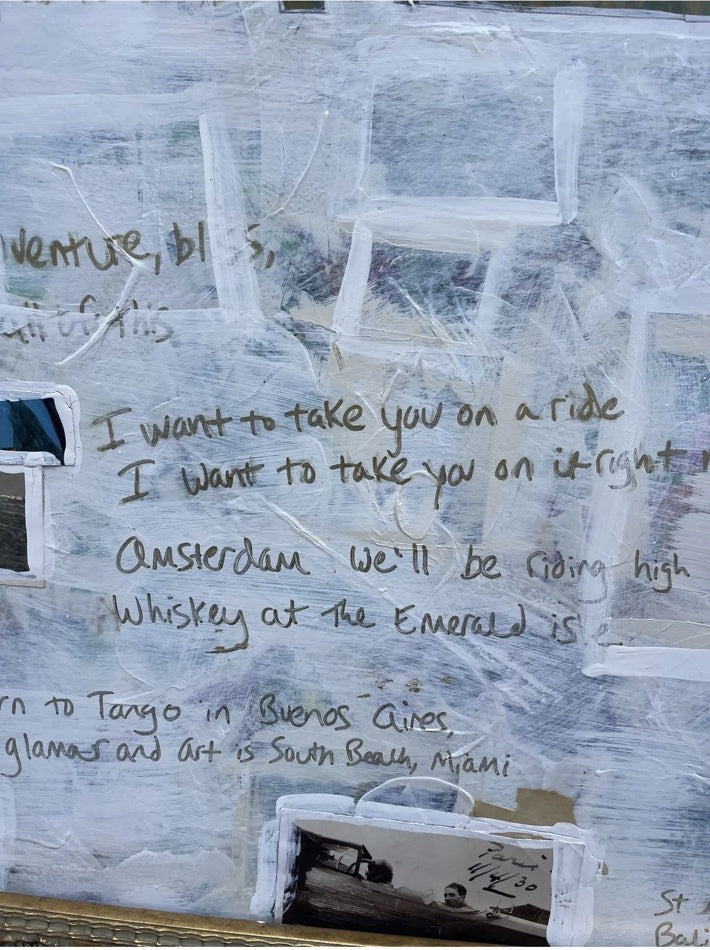 venture,
of this
I want to take you on a ride
I want to take you on it right
Amsterdam we'll be riding high
Whiskey at the Emerald is
rn to Tango in Buenos Aires,
glamar and art is South Beach, Miami
Paris
11/4/30
St
Bali